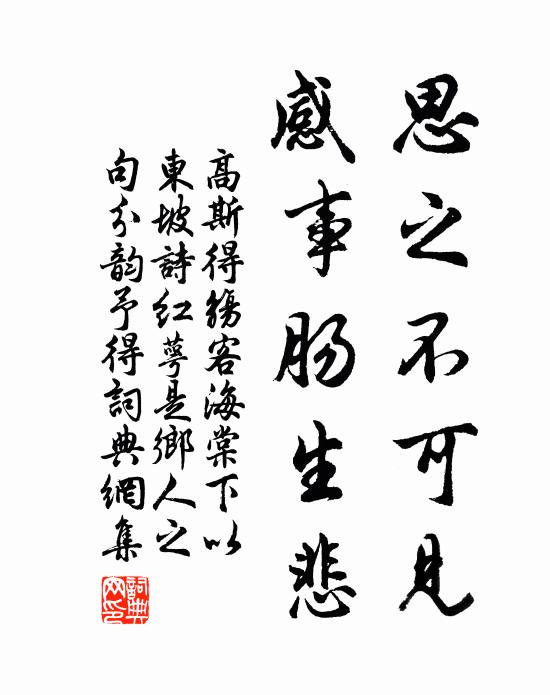 思之不可見
感事肠生悲
高斯得觴客海棠下以
東坡詩紅萼是鄉人之
句分韵予得詞典網集
詞典网印